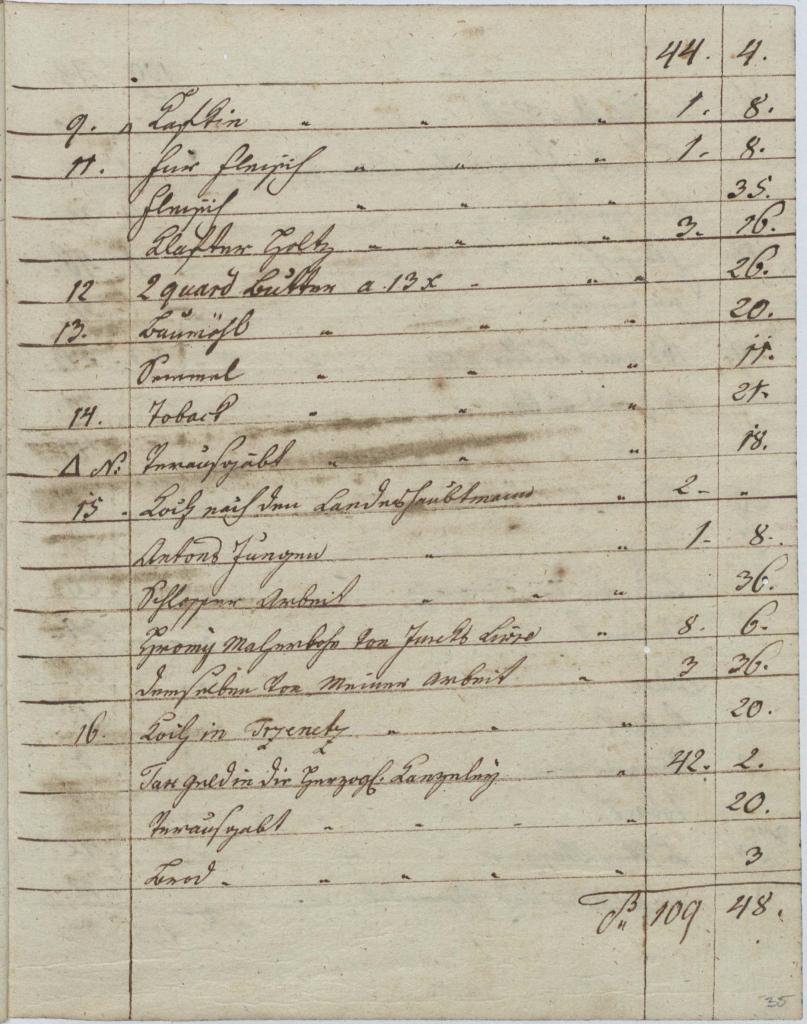 44. 4.
9. 1. 8.
11. Für Fleisch " " " 1. 8.
Fleisch " " " 35.
Klafter Holtz " " " 3. 16.
12 2 quard Butter a 13 x " " " 26.
13. Baumöhl " " " 20.
Semmel " " " 11.
14. Toback " " " 21.
Verausgabt " " " 18.
15 nach den Landeshaubtmann " 2. "
Antons Jungen " " 1. 8.
Schlosser Arbeit " " " 36.
8. 6.
demselben von Meiner Arbeit " 3 36.
16. in Trzenetz " " " 20.
Tax geld in die Herzogl: Kanzeley " 42. 2.
Verausgabt " " " " 20.
Brod " " " " " 3
109 48.
35